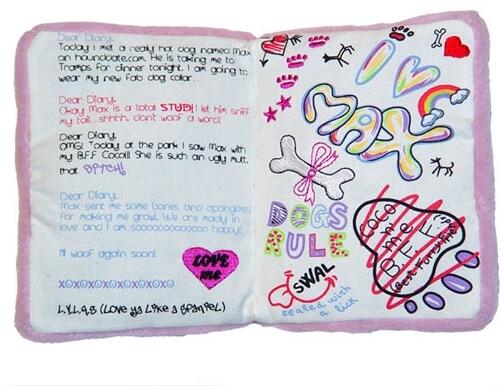 Dear Diary,
Today I met a really hot dog named Max
on hounddate.com. He is taking me to
Tramps for dinner tonight. I am going to
wear my new fab dog collar...
Dear Diary,
Okay Max is a total STUD! I let him sniff
my tail....shhhh, dont woof a word!
Dear Diary,
OMG! Today at the park I saw Max with
my B.F.F Coco!! She is such an ugly mutt,
that BITCH!
Dear Diary,
Max sent me some bones and apologized
for making me growl. We are madly in
love and I am soooooooooooooo happy!
I'll woof again soon!
XOXOXOXOXOXOXOXO
L.Y.L.A.S (Love ya Like a Spaniel)
LOVE
me
I
MAX
DOGS
RULE
COCO
n me
B.F.F
(Best Fur
SWAL
sealed with
a lick